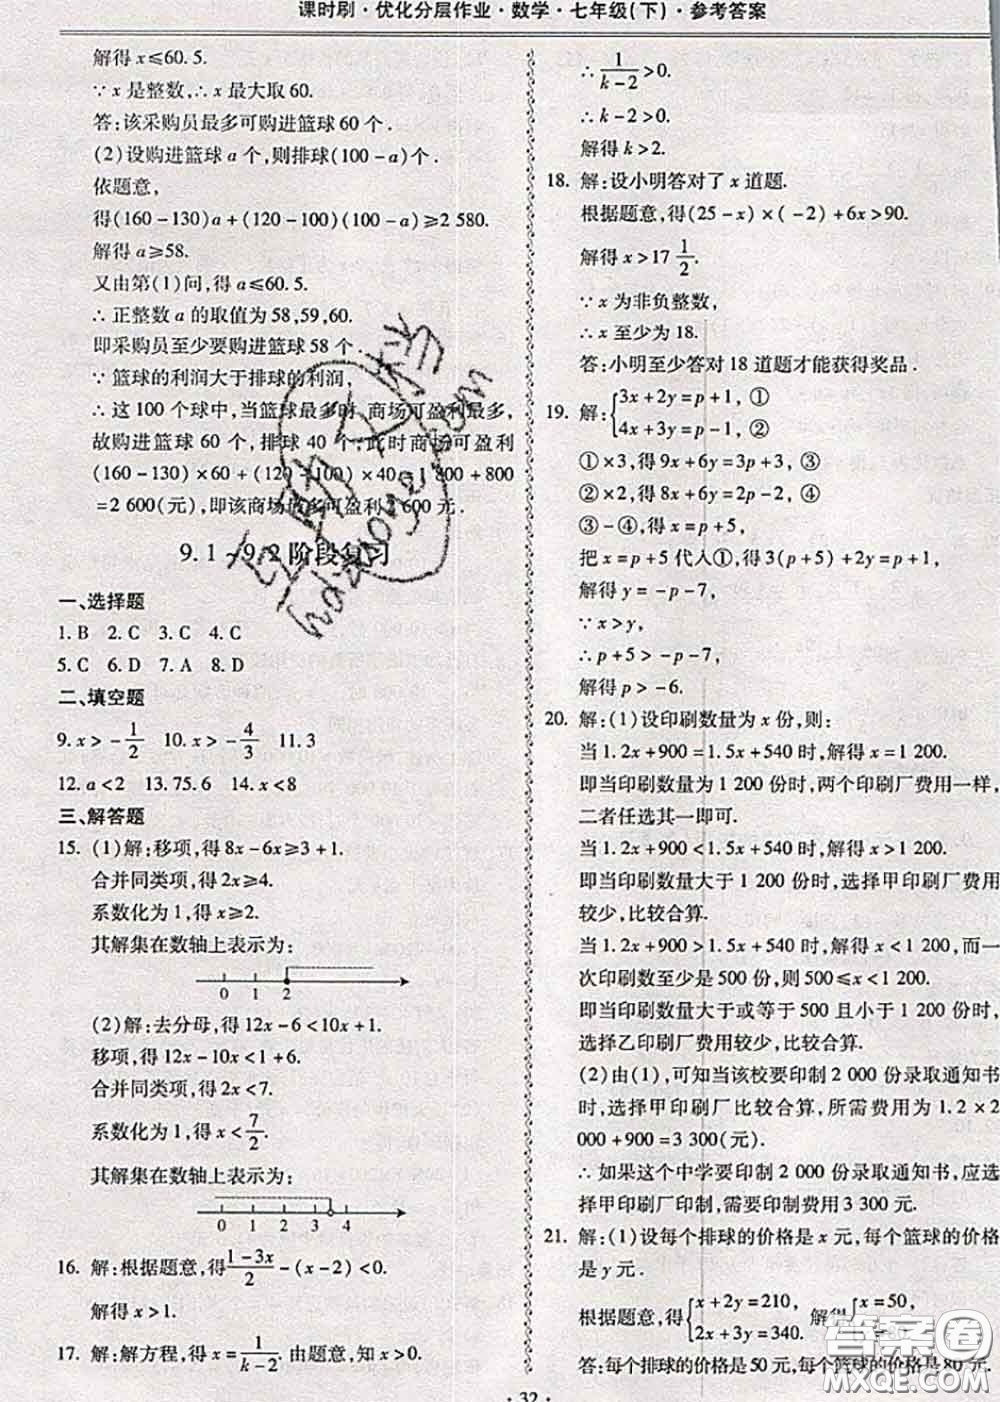 课时刷·优化分层作业·数学·七年级(下)·参考答案
解得 x≤60.5.
∵x 是整数,∴x 最大取 60.
答:该采购员最多可购进篮球 60 个.
(2)设购进篮球 a 个,则排球(100-a)个.
依题意,
得(160-130)a+(120-100)(100-a)≥2 580.
解得 a≥58.
又由第(1)问,得 a≤60.5.
∴正整数 a 的取值为 58,59,60.
即采购员至少要购进篮球 58 个.
∵篮球的利润大于排球的利润,
∴这 100 个球中,当篮球最多时,商场可盈利最多,
故购进篮球 60 个,排球 40 个,此时商场可盈利
(160-130)×60+(120-100)×40=1 800+800
=2 600(元),即该商场最多可盈利 2 600 元.
9.1~9.2 阶段复习
一、选择题
1.B 2.C 3.C 4.C
5.C 6.D 7.A 8.D
二、填空题
9.x>-1/2 10.x>-4/3 11.3
12.a<2 13.75.6 14.x<8
三、解答题
15. (1)解:移项,得 8x-6x≥3+1.
合并同类项,得 2x≥4.
系数化为 1,得 x≥2.
其解集在数轴上表示为:
0 1 2
(2)解:去分母,得 12x-6<10x+1.
移项,得 12x-10x<1+6.
合并同类项,得 2x<7.
系数化为 1,得 x<7/2.
其解集在数轴上表示为:
0 1 2 3 4
16. 解:根据题意,得 (1-3x)/2-(x-2)<0.
解得 x>1.
17. 解:解方程,得 x=1/(k-2). 由题意,知 x>0.
∴1/(k-2)>0.
∴k-2>0.
解得 k>2.
18. 解:设小明答对了 x 道题.
根据题意,得(25-x)×(-2)+6x>90.
解得 x>17 1/2.
∵x 为非负整数,
∴x 至少为 18.
答:小明至少答对 18 道题才能获得奖品.
19. 解:{3x+2y=p+1, ①
4x+3y=p-1, ②
①×3,得 9x+6y=3p+3, ③
②×2,得 8x+6y=2p-2, ④
③-④,得 x=p+5,
把 x=p+5 代入①,得 3(p+5)+2y=p+1,
解得 y=-p-7,
∵x>y,
∴p+5>-p-7,
解得 p>-6.
20. 解:(1)设印刷数量为 x 份,则:
当 1.2x+900=1.5x+540 时,解得 x=1 200.
即当印刷数量为 1 200 份时,两个印刷厂费用一样,
二者任选其一即可.
当 1.2x+900<1.5x+540 时,解得 x>1 200.
即当印刷数量大于 1 200 份时,选择甲印刷厂费用
较少,比较合算.
当 1.2x+900>1.5x+540 时,解得 x<1 200,而一
次印刷数至少是 500 份,则 500≤x<1 200.
即当印刷数量大于或等于 500 且小于 1 200 份时,
选择乙印刷厂费用较少,比较合算.
(2)由(1),可知当该校要印制 2 000 份录取通知书
时,选择甲印刷厂比较合算,所需费用为 1.2×2
000+900=3 300(元).
∴如果这个中学要印制 2 000 份录取通知书,应选
择甲印刷厂印制,需要印制费用 3 300 元.
21. 解:(1)设每个排球的价格是 x 元,每个篮球的价格
是 y 元.
根据题意,得{x+2y=210, 解得{x=50,
2x+3y=340.
答:每个排球的价格是 50 元,每个篮球的价格是 80 元.
·32·
互助文档
hdzuoye.com
答案圈
MXQE.COM